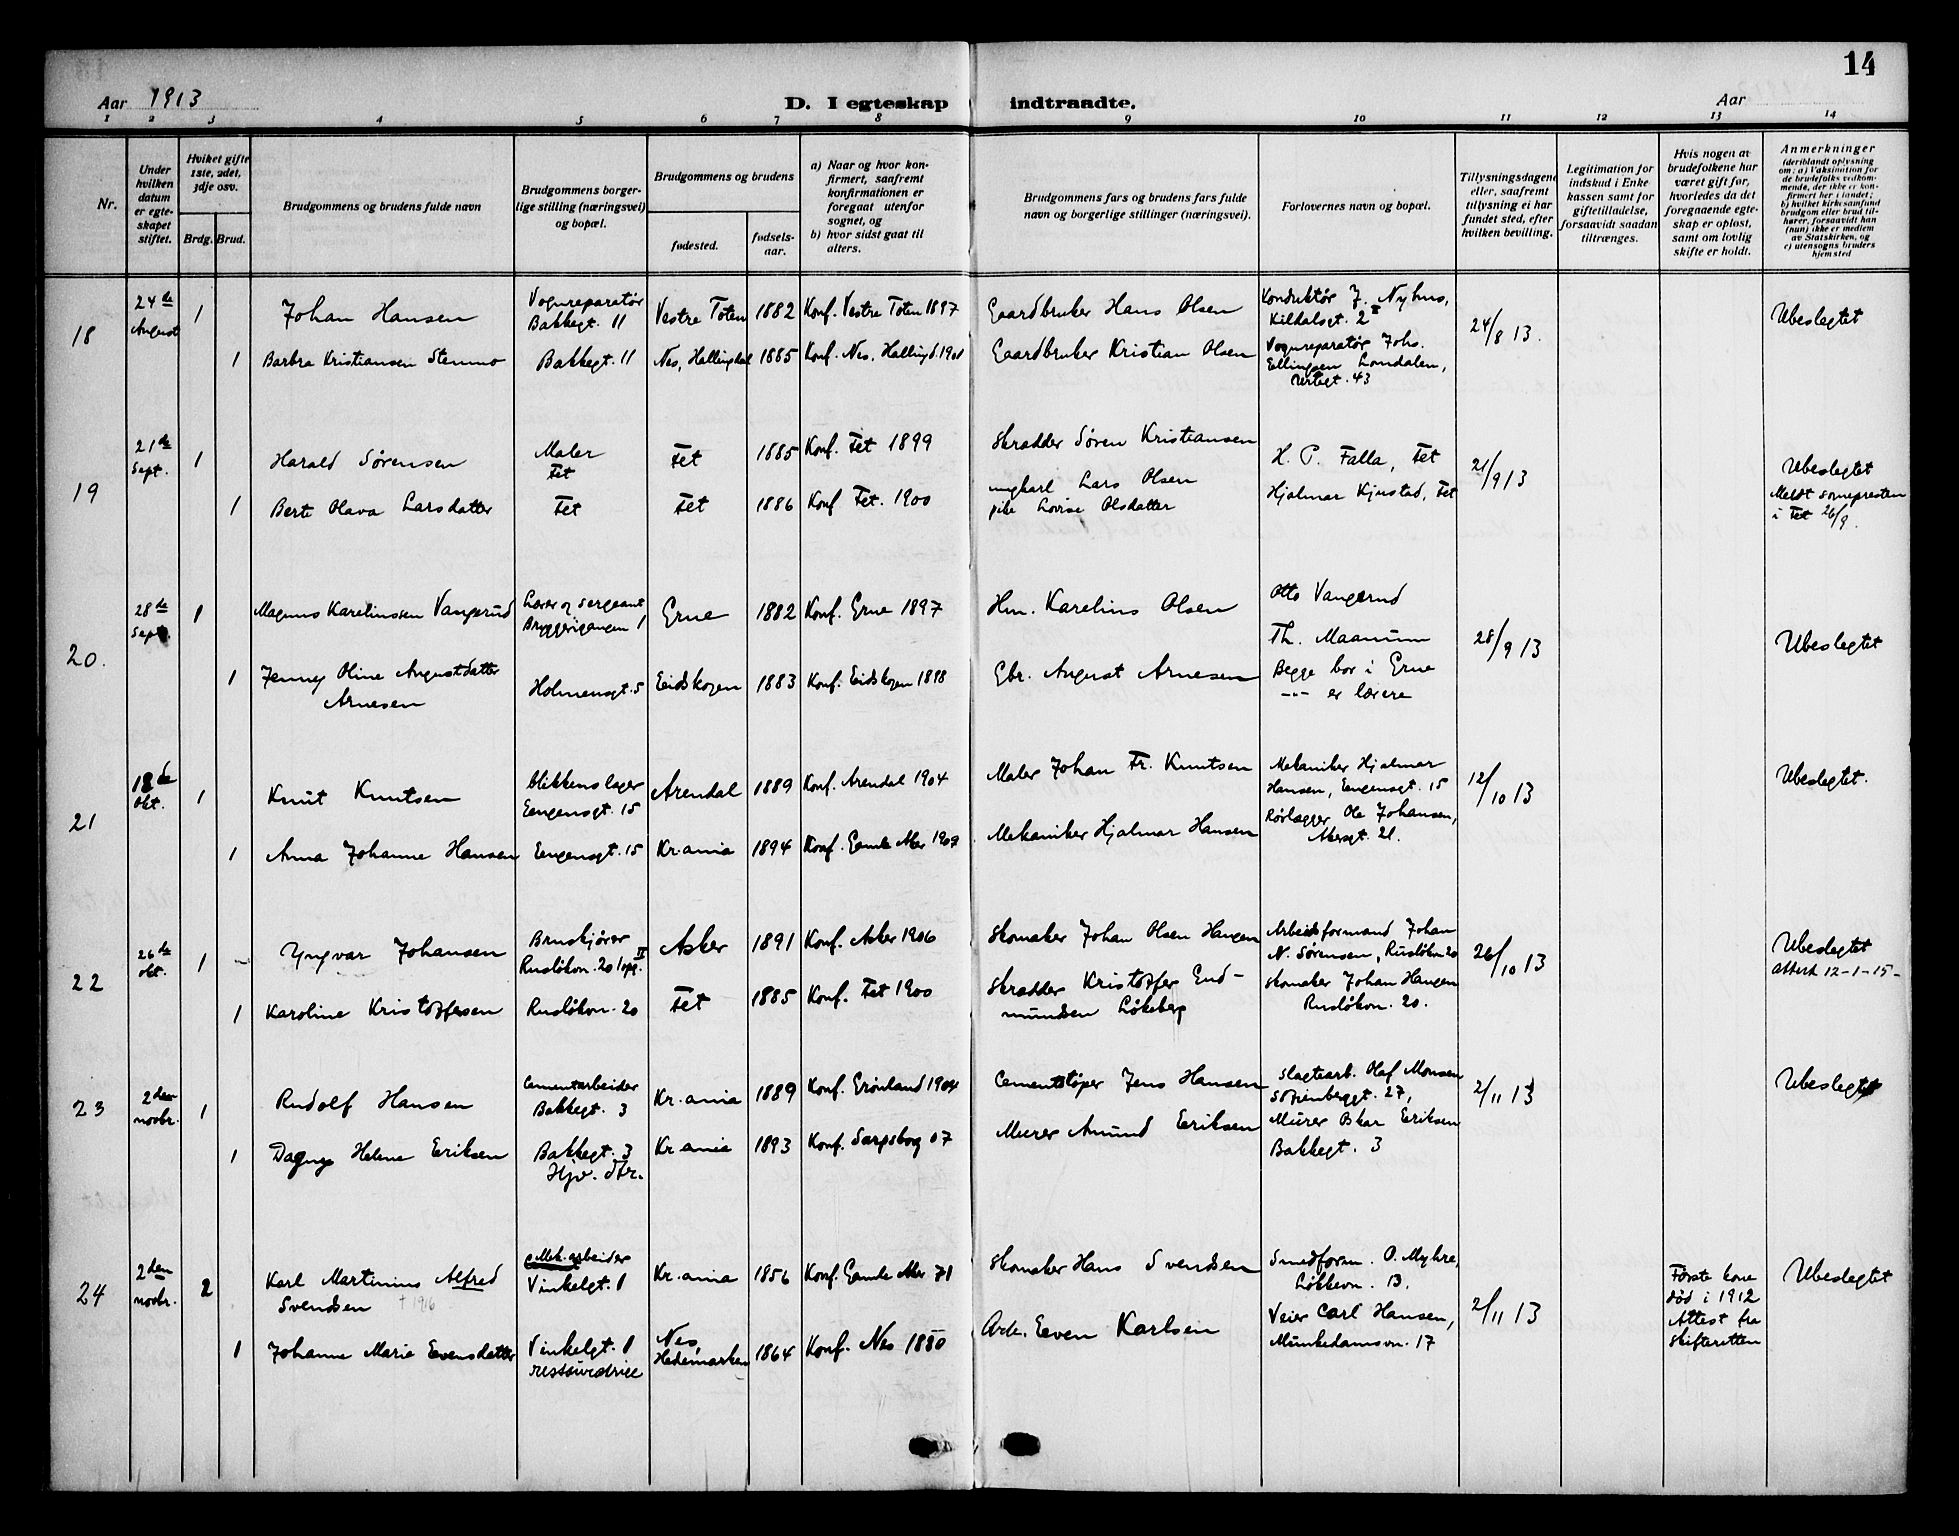 14
Aar 1913
D. I egteskap indtraadte.
Aar
1 2 3 4 5 6 7 8 9 10 11 12 13 14
Nr.
Under hvilken datum er egteskapet stiftet.
Hvilket gifte 1ste, 2det, 3dje osv.
Brdg. Brud.
Brudgommens og brudens fulde navn
Brudgommens borgerlige stilling (næringsvei) og bopæl.
Brudgommens og brudens
fødested.
fødselsaar.
a) Naar og hvor konfirmert, saafremt konfirmationen er foregaat utenfor sognet, og
b) hvor sidst gaat til alters.
Brudgommens fars og brudens fars fulde navn og borgerlige stillinger (næringsvei).
Forlovernes navn og bopæl.
Tillysningsdagene eller, saafremt tillysning ei har fundet sted, efter hvilken bevilling.
Legitimation for indskud i Enkekassen samt for giftetilladelse, forsaavidt saadan tiltrænges.
Hvis nogen av brudefolkene har været gift før, hvorledes da det foregaaende egteskap er opløst, samt om lovlig skifte er holdt.
Anmerkninger (deriblandt oplysning om: a) Vaksination for de brudefolks vedkommende, der ikke er konfirmert her i landet; b) hvilket kirkesamfund brudgom eller brud tilhører, forsaavidt han (hun) ikke er medlem av Statskirken, og c) utensogns bruders hjemsted
18
24de August
1 Johan Hansen
Vognreparatør Bakkegt. 11
Vestre Toten 1882 Konf. Vestre Toten 1897
Gaardbruker Hans Olsen
Konduktør J. Nyhus, Kildalsgt. 2
24/8 13.
Ubeslegtet
1 Barbra Kristiansen Stenmo
Bakkegt. 11
Nes, Hallingdal 1885 Konf. Nes, Hallingd. 1901
Gaardbruker Kristian Olsen
Vognreparatør Johs. Ellingsen Lomdalen, 43
19
21de Sept.
1 Harald Sørensen
Maler Fet
Fet 1885 Konf. Fet 1899
Skrædder Søren Kristiansen
H. P. Falla, Fet
21/9 13
Ubeslegtet
Meldt sogneprsten i Fet 26/9.
1 Berte Olava Larsdatter
Fet
Fet 1886 Konf Fet. 1900
ungkarl Lars Olsen
pike Lovise Olsdatter
Hjalmar Kjustad, Fet
20.
28de Sept.
1 Magnus Karelinssen Vangerud
Lærer og sergeant Bryggerigangen 1
Grue 1882 Konf. Grue 1897
Hm. Karelius Olsen
Otto Vangerud
Th. Maanum
Begge bor i Grue
-"- er lærere
28/9 13
Ubeslegtet
1 Jenny Oline Augustdatter Arnesen
Holmensgt. 5
Eidskogen 1883 Konf. Eidskogen 1898
Gbr. August Arnesen
21
12de Okt.
1 Knut Knutsen
Blikkenslager Eengensgt. 15
Arendal 1889 Konf. Arendal 1904
Maler Johan Fr. Knutsen
Mekaniker Hjalmar Hansen, Eengensgt. 15
12/10 13
Ubeslegtet.
1 Anna Johanne Hansen
Eengensgt. 15
Kr.ania 1894 Konf. Gamle Aker 1909
Mekaniker Hjalmar Hansen
Rørlægger Ole Johansen, Akersgt. 21.
22
26de okt.
1 Yngvar Johansen
Bruskjører Rusløkvn. 20 I opg. II
Asker 1891 Konf. Asker 1906
Skomaker Johan Olsen Haugen
Arbeidsformand Johan N. Sørensen, Rusløkvn 20
26/10 13
Ubeslegtet
attest 12-1-15-
1 Karoline Kristoffersen
Rusløkvn. 20
Fet 1885 Konf. Fet 1900
Skrædder Kristoffer Gudmundsen Løkeberg
Skomaker Johan Haugen Rusløkvn. 20.
23
2den novbr.
1 Rudolf Hansen
Cementarbeider Bakkegt. 3
Kr.ania 1889 Konf. Grønland 1904
Cementstøper Jens Hansen
Slagteart. Olaf Monsen Sofienberggt. 27,
2/11 13
Ubeslegtet
1 Dagny Helene Eriksen
Bakkegt. 3
Hjv. dtr.
Kr.ania 1893 Konf. Sarpsborg 07
Murer Amund Eriksen
Murer Oskar Eriksen Bakkegt. 3
24
2den novbr.
2 Karl Martinius Alfred Svendsen † 1916
Mek. arbeider Vinkelgt. 1
Kr.ania 1856 Konf. Gamle Aker 71
Skomaker Hans Svendsen
Smedform. O. Myhre, Løkkevn. 13.
2/11 13
Første kone død i 1912
Attest fra skifteretten
Ubeslegtet
1 Johanne Marie Evensdatter
Vinkelgt. 1
Nes, Hedemarken 1864 Konf. Nes 1880
Arb. Even Karlsen
Veier Carl Hansen, Munkedamsvn. 17